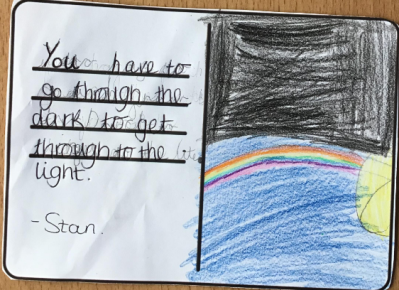 You have to
go through the
dark to get
through to the
light.
- Stan.